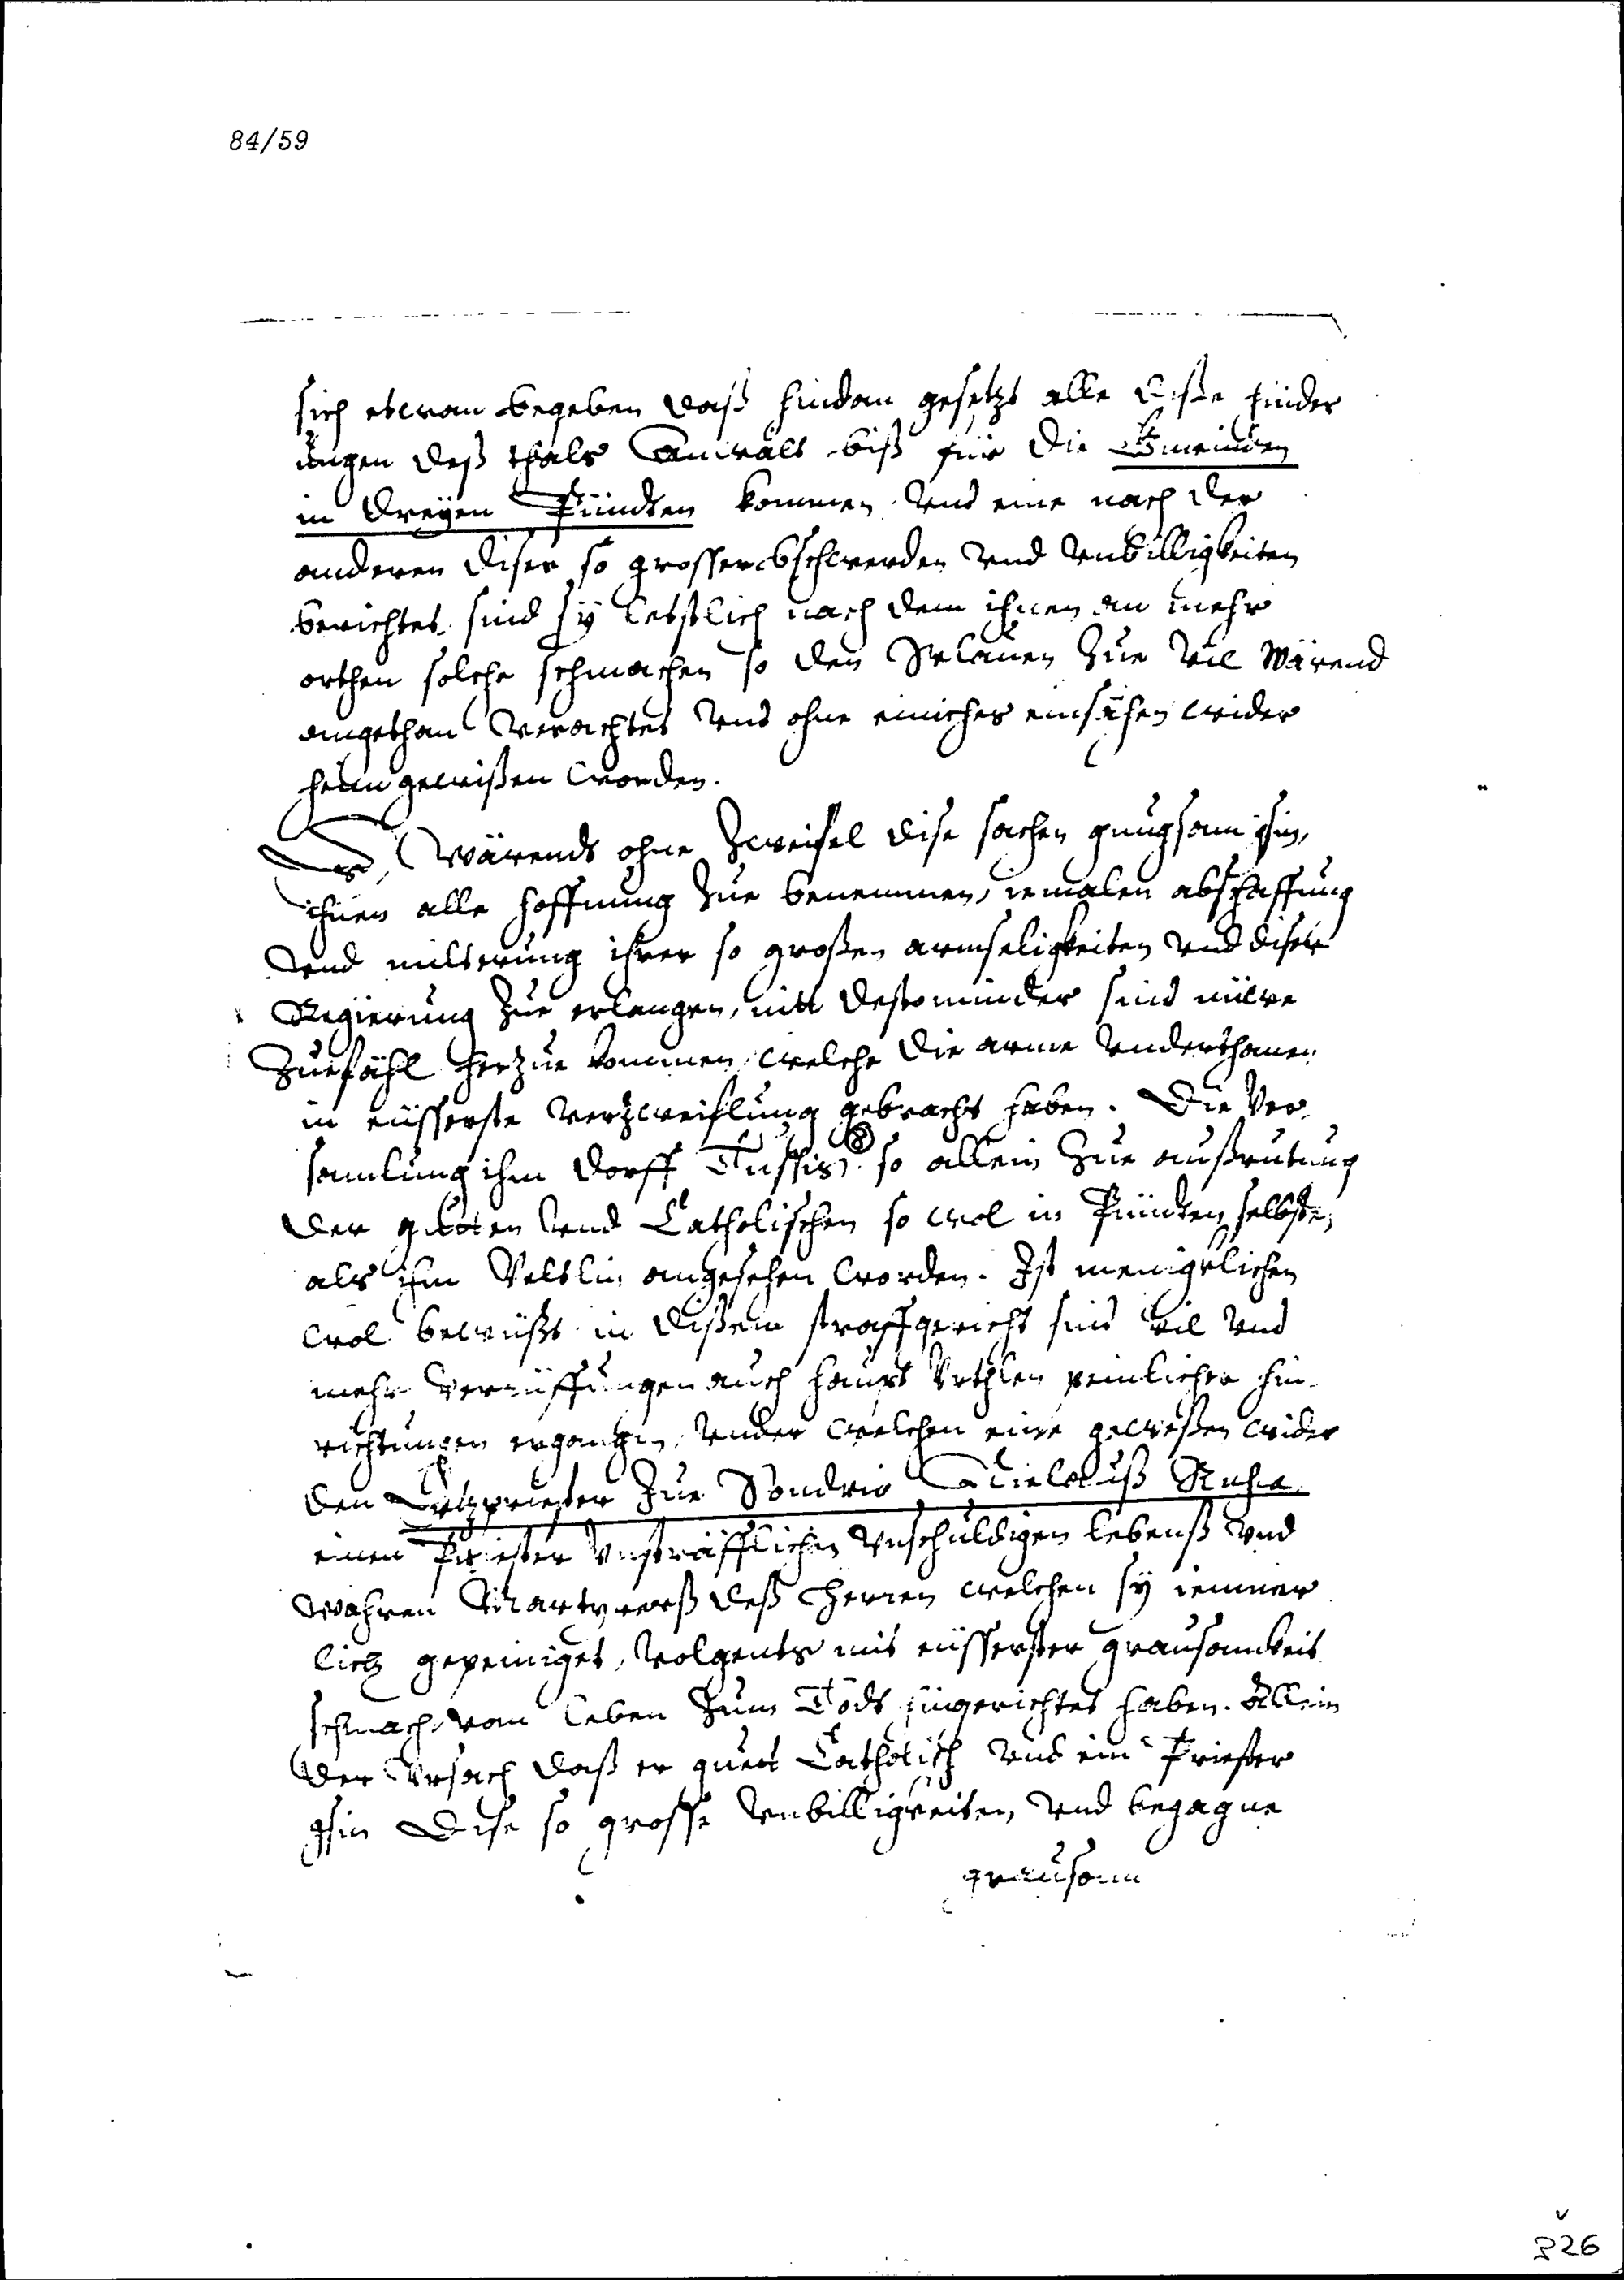 84/59
sich etwan begeben daß hindan gesetzt alle diße hinder
ungen deß thals Anwält biß für die Gmeinden
in dreyen Pündten kommen vnd eine nach der
anderen diser so grossen bschwerden vnd vnbilligkeiten
berichtet sind sy letstlich nach dem ihnen an mehr
orthen solche schmachen so den Sclauen zue vil wärend
angethan verachtet vnd ohne einiches einsächen wider
heim gewißen worden.
Es wärends ohne zweifel dise sachen gnugsam gsin,
ihnen alle hoffnung zue benemmen, iemalen abschaffung
vnd milterung ihrer so großen armseligkeiten vnd diser
Regierung zue erlangen, nitt destominder sind nüwe
Zuefähl herzue kommen, welche die arme vnderthanen
in eüsserste verzweiflung gebracht haben. Die Ver
samlung ihm dorff Tussis so allein zue außrütung
der guoten vnd Catholischen so wol in Pündten selbste,
als ihm Veltlin angesehen worden. Ist menigklichen
wol bewüßt in dißem straffgericht sind vil vnd
mehr verrüffungen auch haupt Vrthlen peinlicher hin
richtungen ergangen, vnder welchen eine gewesen wider
den Ertzpriester zue Sondrio Nicolauß Rusca
einen Priester vnsträfflichen vnschuldigen lebenß vnd
wahren Martyrerß deß Herren welchen sy iemmer
lich gepeiniget, volgents mit eüsserster grausamkeit
schmach vom leben zum Todt hingerichtet haben. Allein
der Vrsach daß er guett Catholisch vnd ein Priester
gsin Dise so grosse vnbilligkeiten, vnd begagne
grausam
326